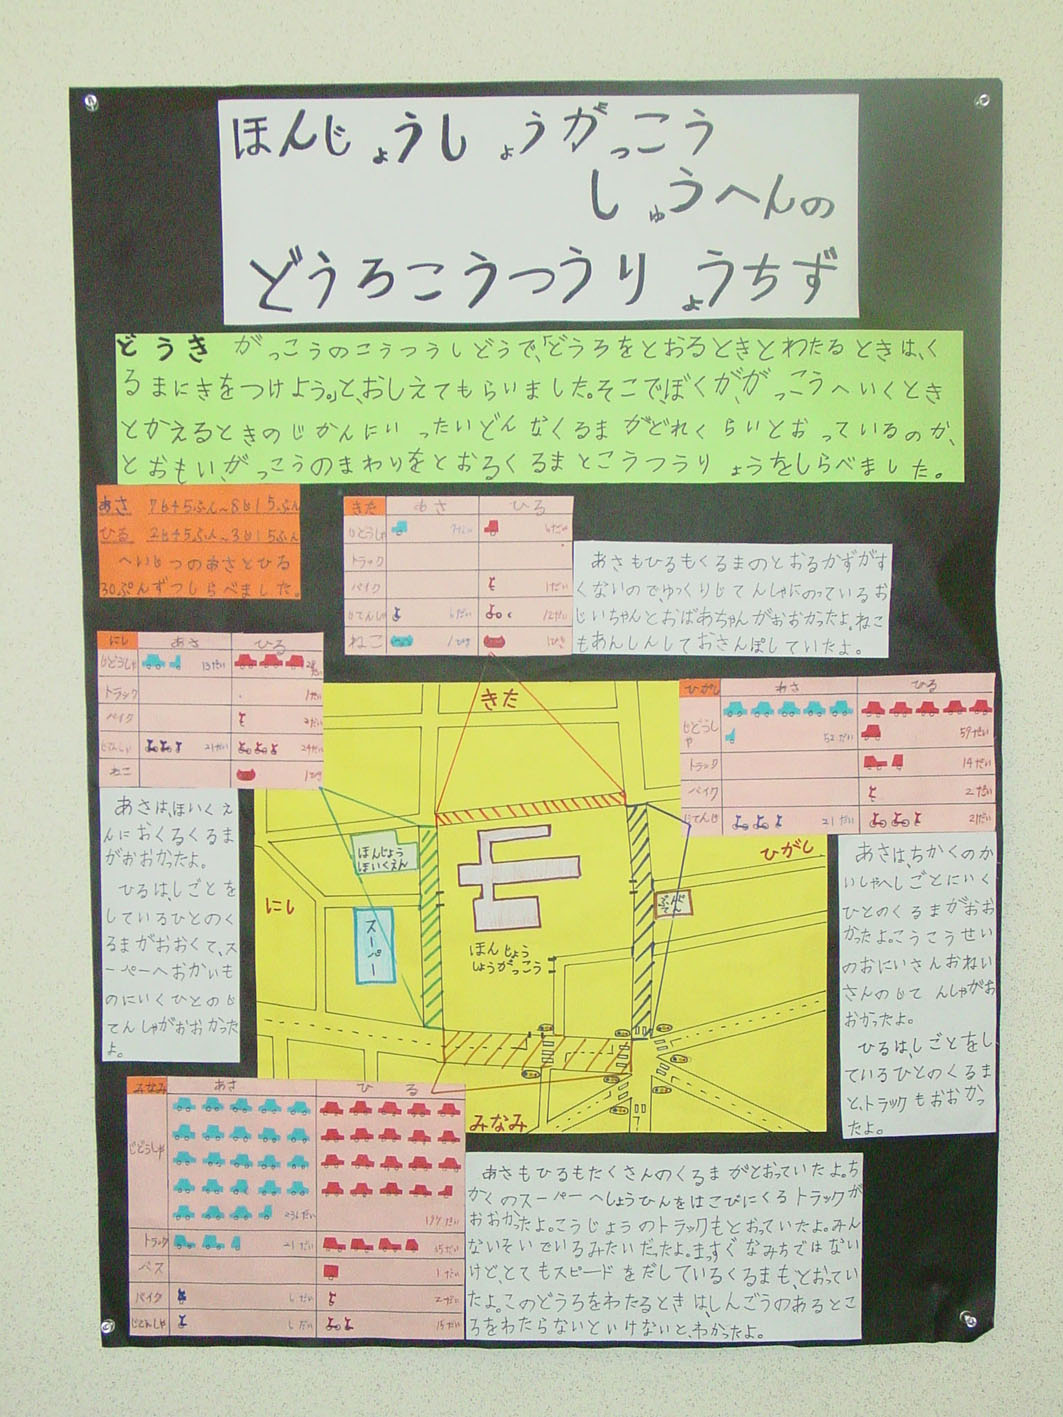 ほんじょうしょうがっこう
しゅうへんの
どうろこうつうりょうちず
どうき がっこうのこうつうしどうで、「どうろをとおるときとわたるときは、く
るまにきをつけよう。」と、おしえてもらいました。そこで、ぼくが、がっこうへいくとき
とかえるときのじかんにいったいどんなくるまがどれくらいとおっているのか、
とおもい、がっこうのまわりをとおるくるまとこうつうりょうをしらべました。
あさ 7じ45ふん~8じ15ふん
ひる 2じ45ふん~3じ15ふん
へいじつのあさとひる
30ぷんずつしらべました。
きた あさ ひる
じどうしゃ
トラック
バイク 1だい
じてんしゃ 12だい
ねこ 1ぴき 1ぴき
あさもひるもくるまのとおるかずがす
くないので、ゆっくりじてんしゃにのっているお
じいちゃんとおばあちゃんがおおかったよ。ねこ
もあんしんしておさんぽしていたよ。
にし あさ ひる
じどうしゃ 13だい
トラック 1だい
バイク 2だい
じてんしゃ 21だい 24だい
ねこ 1ぴき
あさは、ほいくえ
んにおくるくるま
がおおかったよ。
ひるは、しごとを
しているひとのく
るまがおおくて、ス
ーパーへおかいも
のにいくひとのじ
てんしゃがおおかった
よ。
ひがし あさ ひる
じどうしゃ 52だい 59だい
トラック 14だい
バイク 2だい
じてんしゃ 21だい 21だい
あさは、ちかくのか
いしゃへしごとにいく
ひとのくるまがおお
かったよ。こうこうせい
のおにいさんおねい
さんのじてんしゃがお
おかったよ。
ひるは、しごとをし
ているひとのくるま
と、トラックもおおかっ
たよ。
きた
ほんじょう
ほいくえん
にし
スーパー
ほんじょう
しょうがっこう
ひがし
みなみ
みなみ あさ ひる
じどうしゃ
トラック 21だい 35だい
バス 1だい
バイク 2だい
じてんしゃ 15だい
あさもひるもたくさんのくるまがとおっていたよ。ち
かくのスーパーへしょうひんをはこびにくるトラックが
おおかったよ。こうじょうのトラックもとおっていたよ。みん
ないそいでいるみたいだったよ。まっすぐなみちではない
けど、とてもスピードをだしているくるまも、とおってい
たよ。このどうろをわたるときは、しんごうのあるとこ
ろをわたらないといけないと、わかったよ。